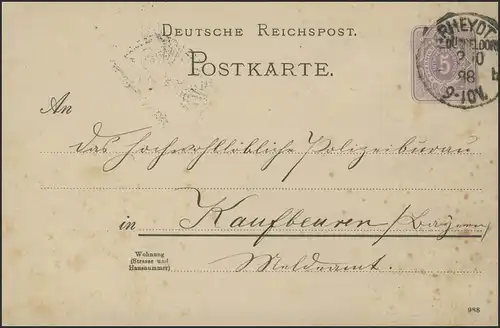 DEUTSCHE REICHSPOST.
POSTKARTE.
RHEYDT
5
88
An
das hochwohllöbliche Polizeibureau
in Kaufbeuren/Bayern
Wohnung
(Strasse und
Hausnummer)
Meldeamt.
988